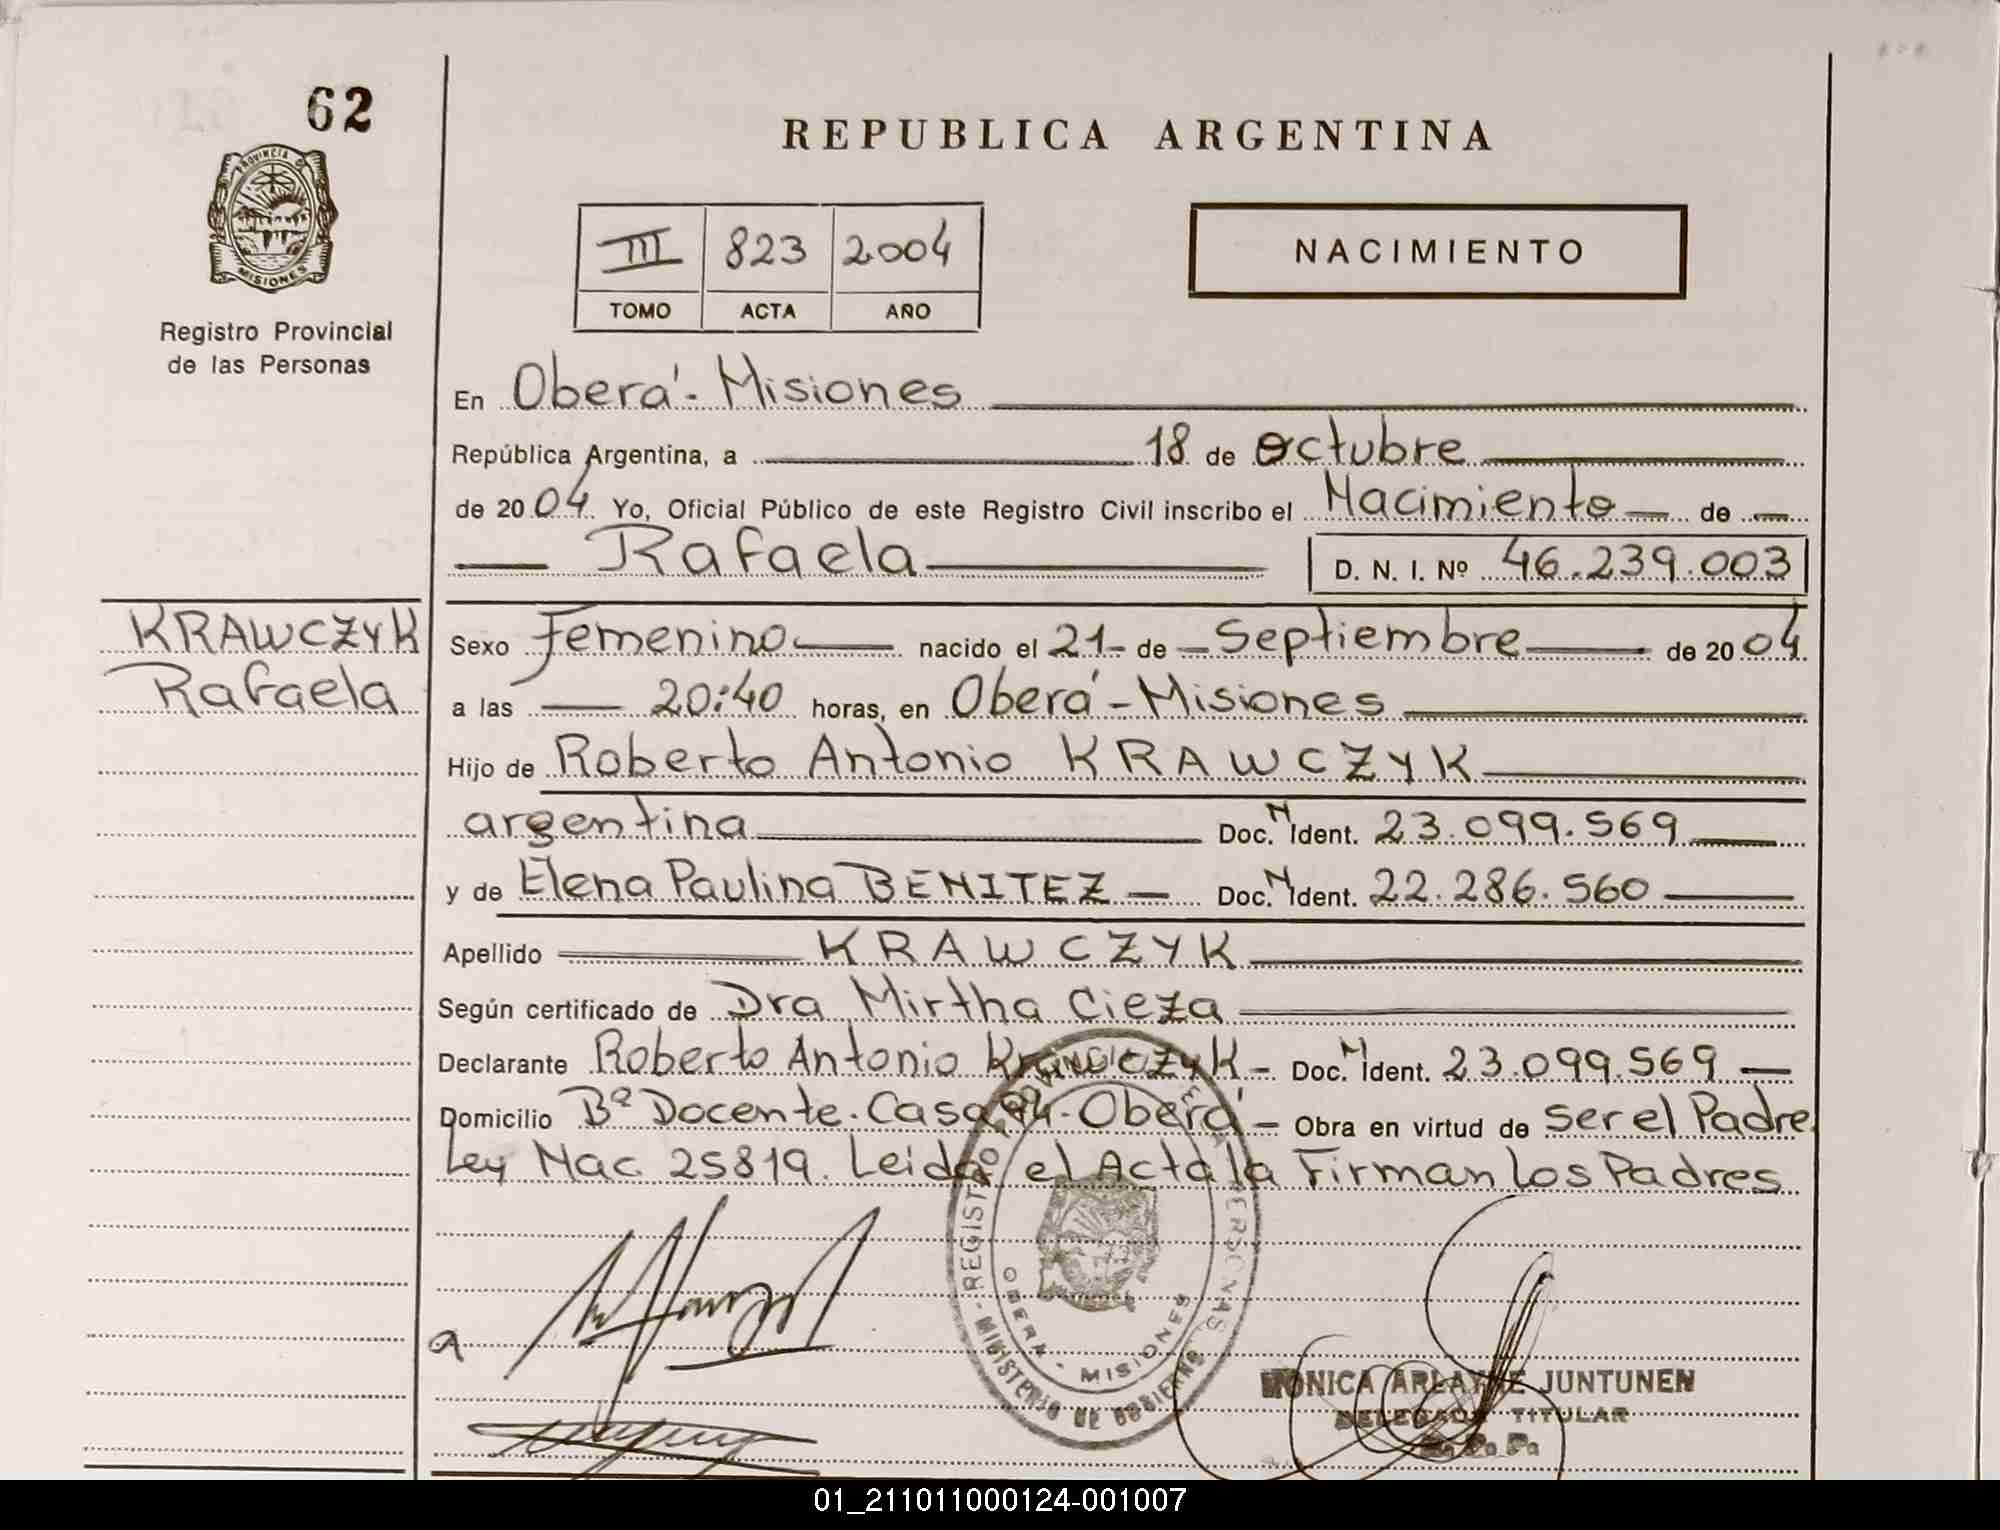 62
PROVINCIA D
MISIONES
Registro Provincial
de las Personas
REPUBLICA ARGENTINA
III 823 2004
TOMO ACTA AÑO
NACIMIENTO
En Oberá - Misiones
República Argentina, a 18 de Octubre
de 2004 Yo, Oficial Público de este Registro Civil inscribo el Nacimiento de
Rafaela D. N. I. Nº 46.239.003
KRAWCZYK
Rafaela
Sexo Femenino nacido el 21 de Septiembre de 2004
a las 20:40 horas, en Oberá - Misiones
Hijo de Roberto Antonio KRAWCZYK
argentina Doc. N Ident. 23.099.569
y de Elena Paulina BENITEZ Doc. N Ident. 22.286.560
Apellido KRAWCZYK
Según certificado de Dra Mirtha Cieza
Declarante Roberto Antonio Krawczyk - Doc. N Ident. 23.099.569
Domicilio Bº Docente. Casa 94. Oberá - Obra en virtud de ser el Padre
Ley Nac. 25819. Leida el Acta la Firman los Padres
- REGISTRO PROVINCIAL DE LAS PERSONAS - MINISTERIO DE GOBIERNO
OBERA - MISIONES
MONICA ARLAYNE JUNTUNEN
DELEGADA TITULAR
R. P. P.
01_211011000124-001007